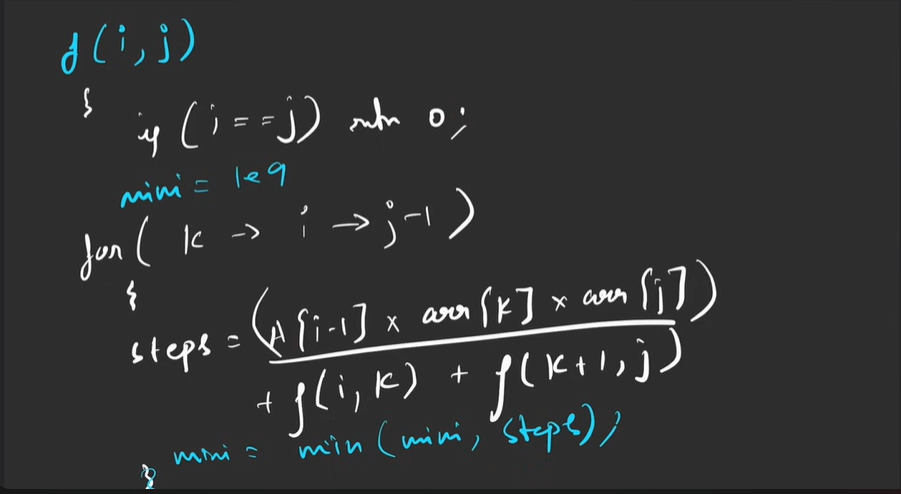 f(i,j)
{
if (i==j) return 0;
mini = 1e9
for( k -> i -> j-1)
{
steps = (A[i-1] x arr[k] x arr[j])
+ f(i,k) + f(k+1,j)
mini = min(mini, steps);
}